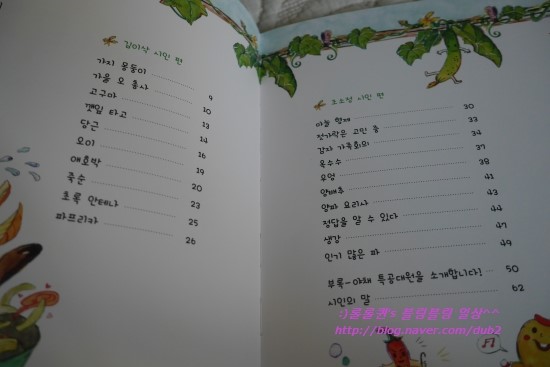 김미상 시인 편
가지 몽둥이 9
가을 모 총사 10
고구마 13
깻잎 타고 14
당근 16
오이 19
애호박 20
죽순 23
초록 안테나 25
파프리카 26
오소정 시인 편
마늘 형제 30
젓가락은 고민 중 33
감자 가족회의 34
옥수수 37
우엉 38
양배추 41
양파 요리사 43
정답을 알 수 있다 44
생강 47
인기 많은 파 49
부록-야채 특공대원을 소개합니다! 50
시인의 말 62
http://blog.naver.com/dub2